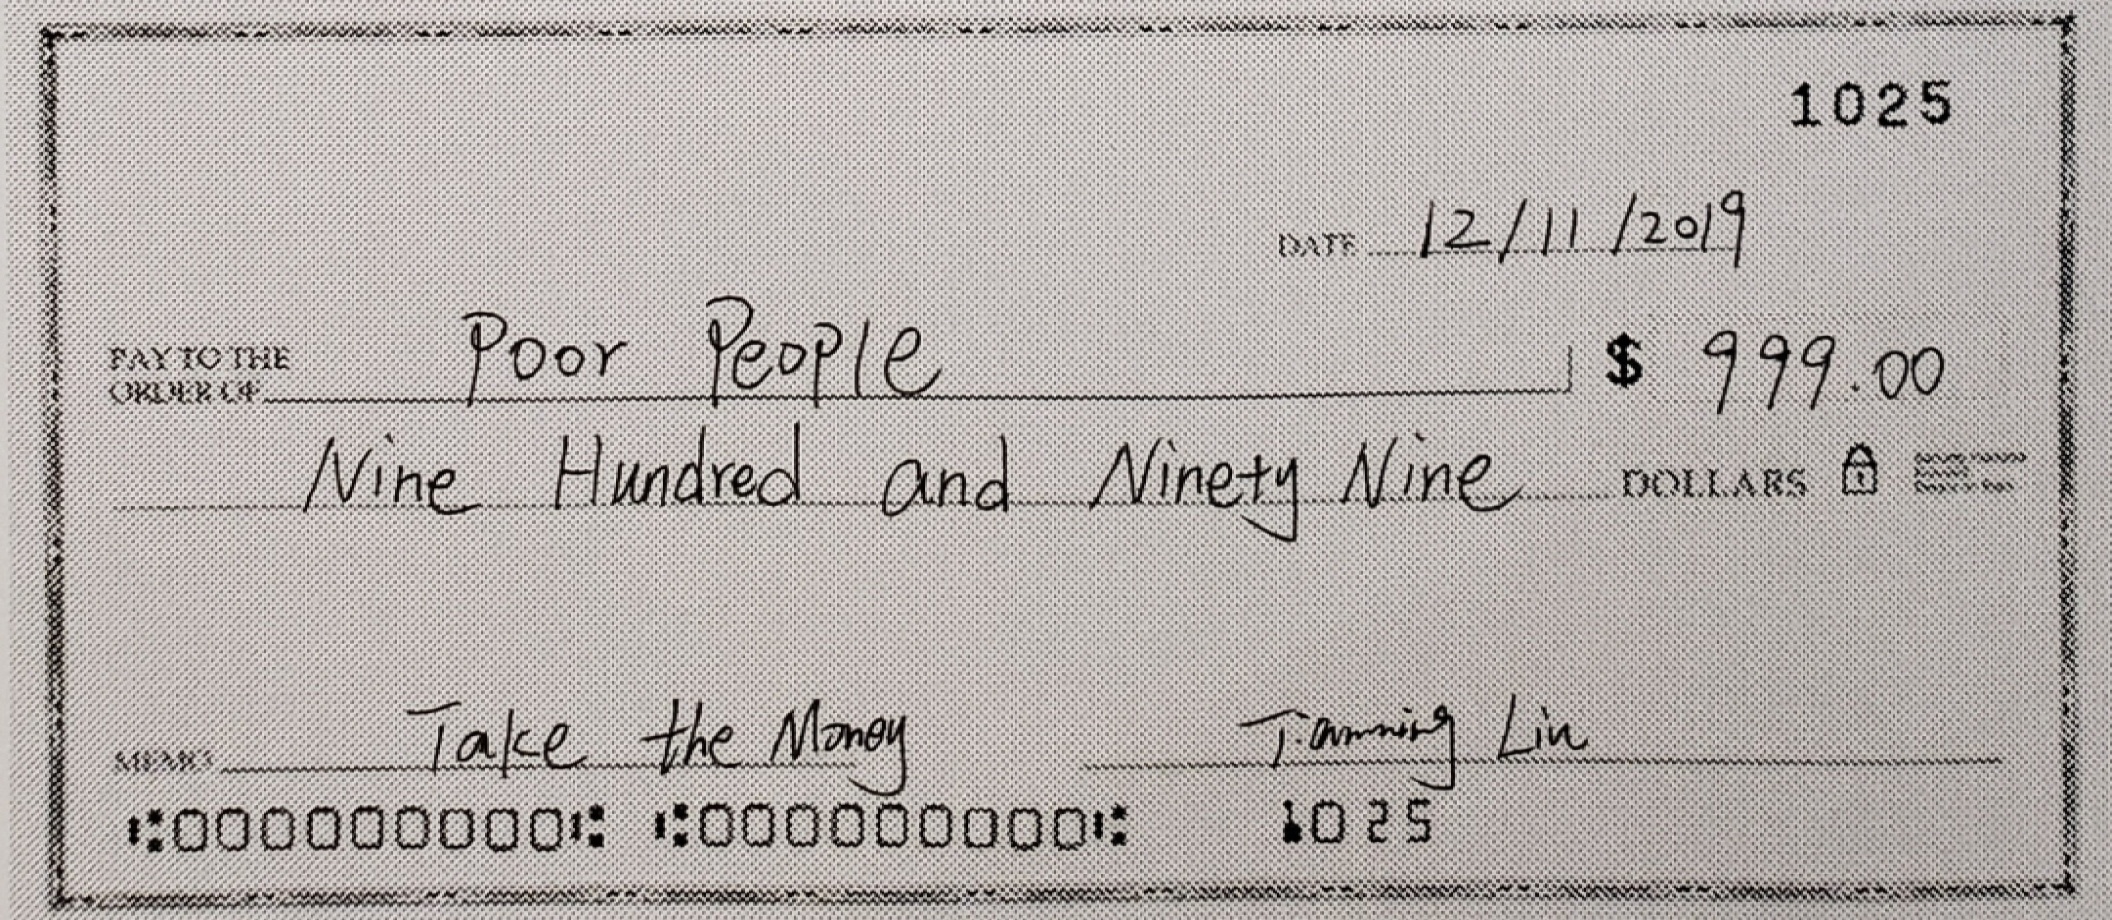 1025
DATE 12/11/2019
PAY TO THE
ORDER OF Poor People $ 999.00
Nine Hundred and Ninety Nine DOLLARS
MEMO Take the Money Lin
⑆000000000⑆ ⑆000000000⑆ 1025